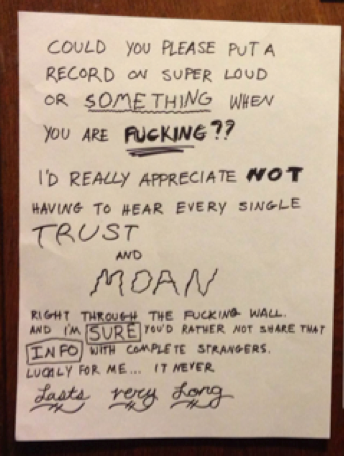 COULD YOU PLEASE PUT A
RECORD ON SUPER LOUD
OR SOMETHING WHEN
YOU ARE FUCKING??
I'D REALLY APPRECIATE NOT
HAVING TO HEAR EVERY SINGLE
TRUST
AND
MOAN
RIGHT THROUGH THE FUCKING WALL.
AND I'M SURE YOU'D RATHER NOT SHARE THAT
INFO WITH COMPLETE STRANGERS.
LUCKLY FOR ME... IT NEVER
Lasts very Long